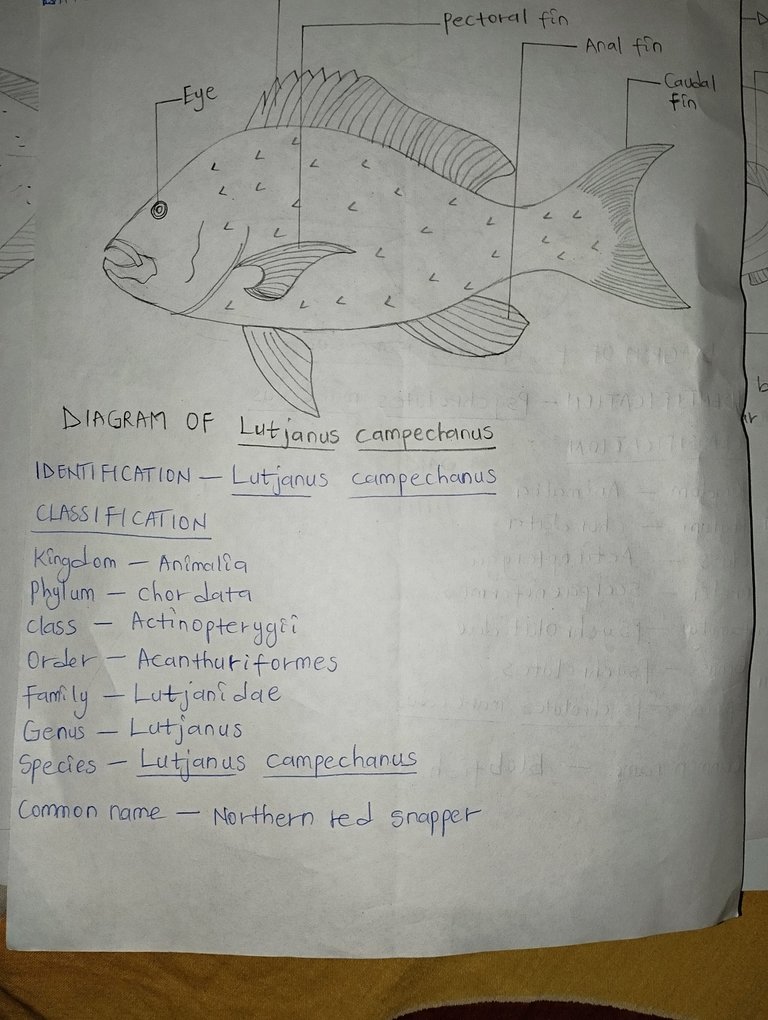 Pectoral fin
Anal fin
Caudal
fin
Eye
DIAGRAM OF Lutjanus campechanus
IDENTIFICATION — Lutjanus campechanus
CLASSIFICATION
Kingdom — Animalia
Phylum — chordata
class — Actinopterygii
Order — Acanthuriformes
Family — Lutjanidae
Genus — Lutjanus
Species — Lutjanus campechanus
Common name — Northern red snapper